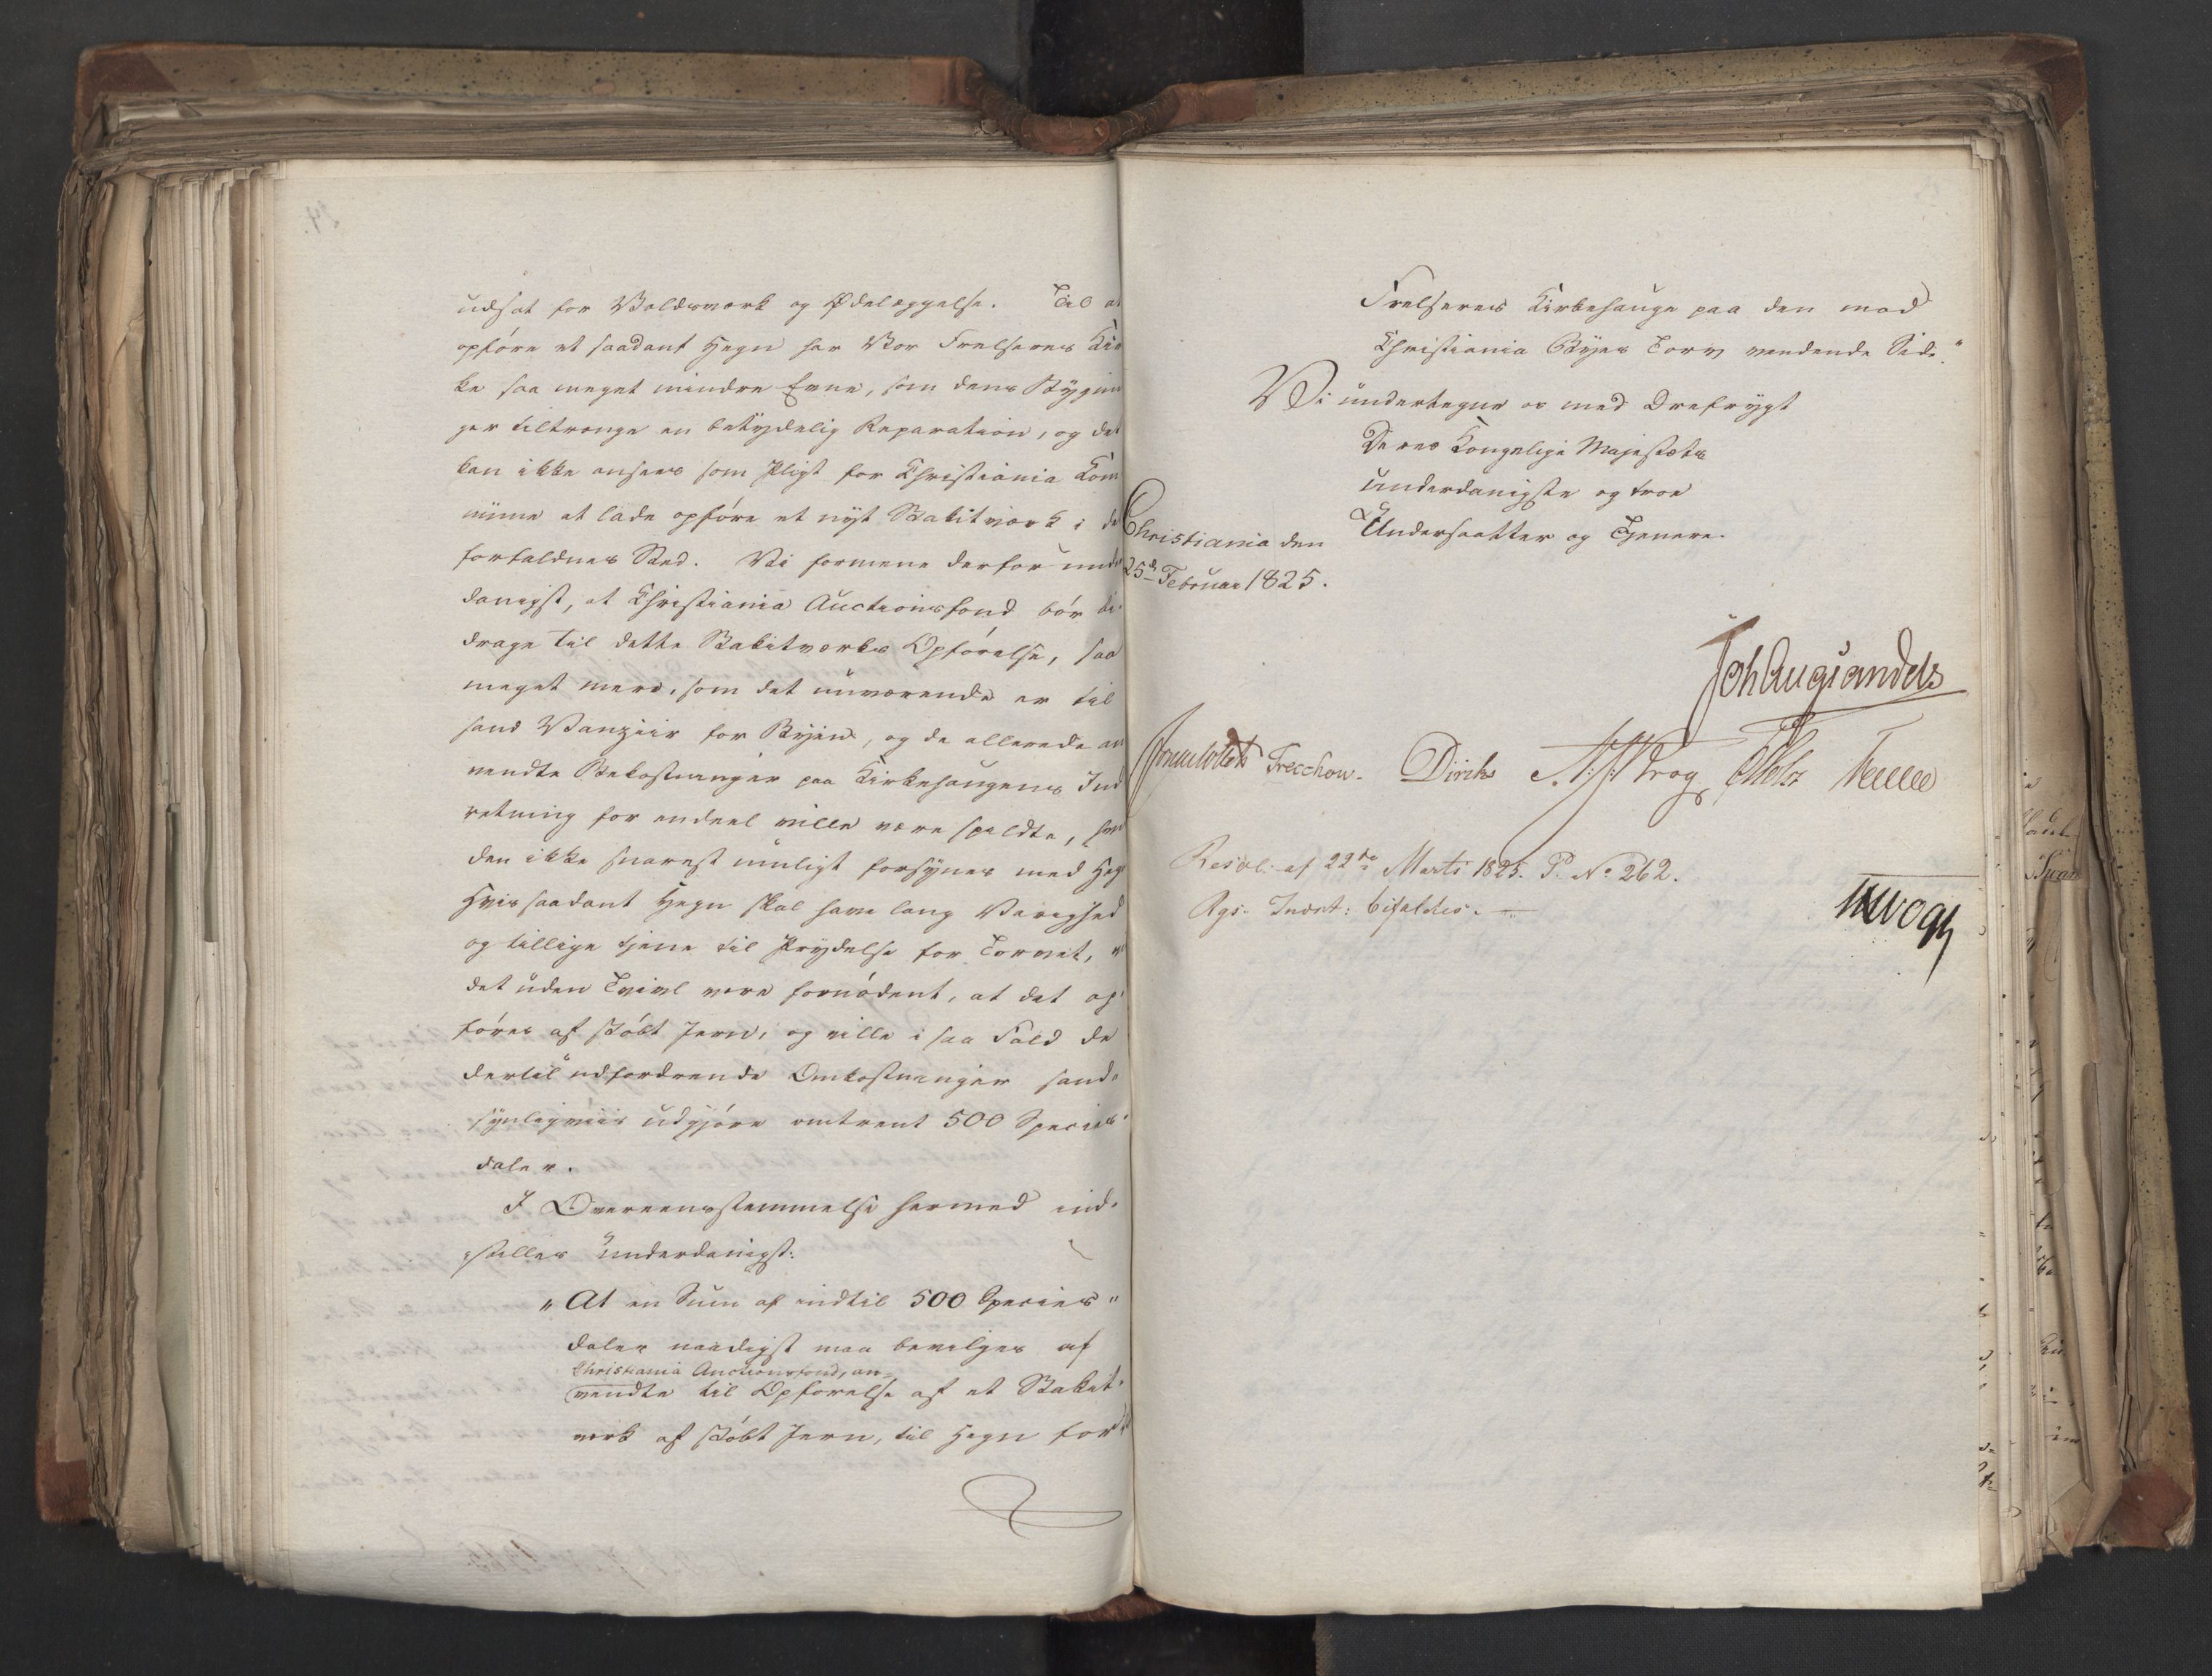 udsat for Voldsværk og Ødelæggelse. Til at
opføre et saadant Hegn har Vor Frelseres Kir
ke saa meget mindre Evne, som dens Bygnin
ger tiltrænge en betydelig Reparation, og det
kan ikke ansees som Pligt for Christiania Com
mune at lade opføre et nyt Stakitværk i det
forfaldnes Sted. Vi formene derfor under
danigst, at Christiania Auctionsfond bør bi-
drage til dette Stakitværks Opførelse, saa
meget mere, som det nuværende er til
sand Vanziir for Byen, og de allerede an
vendte Bekostninger paa Kirkehaugens Ind
retning for endeel ville være spildte, hvis
den ikke snarest muligt forsynes med Hegn
Hvis saadant Hegn skal have lang Varighed
og tillige tjene til Prydelse for Torvet, vil
det uden Tvivl være fornødent, at det op
føres af støbt Jern, og ville i saa Fald de
dertil udfordrende Omkostninger sand-
synligviis udgjøre omtrent 500 Species-
daler.
I Overeensstemmelse hermed ind-
stilles underdanigst:
"At en Sum af indtil 500 Species"
daler naadigst maa bevilges af
Christiania Auctionsfond, an-
vendte til Opførelse af et Stakit-
værk af støbt Jern, til Hegn for
Frelseres Kirkehauge paa den mod
Christiania Byes Torv vendende Side."
Vi undertegne os med Ærefrygt
Deres Kongelige Majestæts
underdanigste og troe
Undersaatter og Tjenere.
Christiania den
25de Februar 1825.
Joh Aug Sandels
Jonas Collett Treschow. Diriks A: A: Krog C Holst Fasting
Resol: af 22de Marts 1825. P. No 262.
Rgs. Indst: bifaldes.
JH Vogt